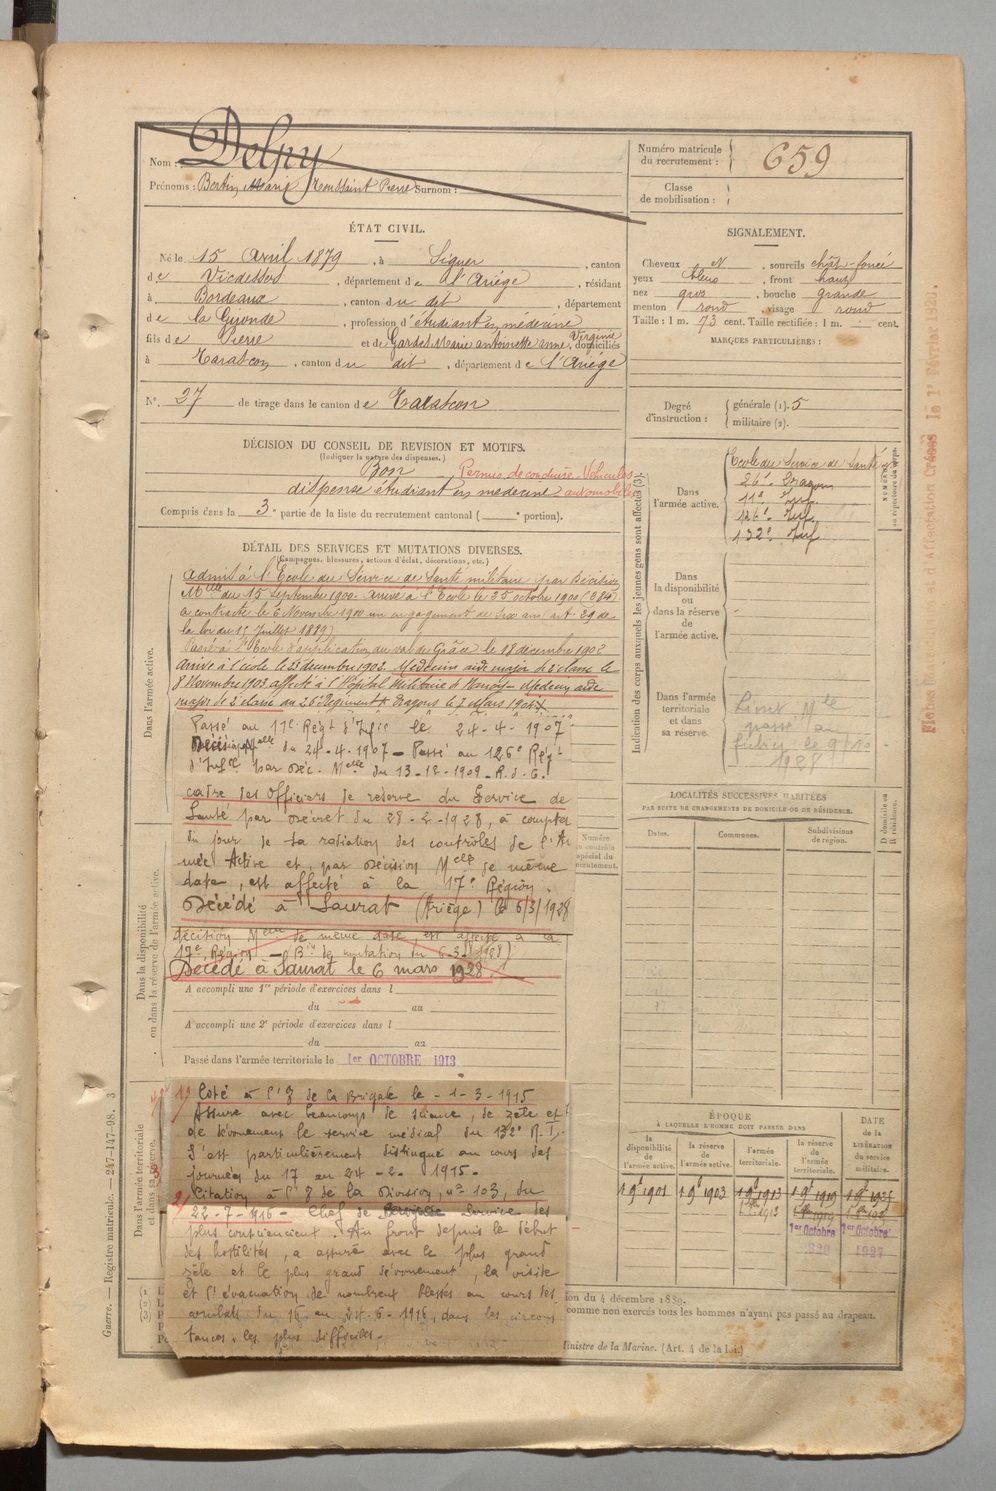 Nom : Delpy
Prénoms : Bertin Marie Toussaint Pierre Surnom :
Numéro matricule du recrutement : 659
Classe de mobilisation :
ÉTAT CIVIL.
Né le 15 Avril 1879, à Siguer, canton
de Vicdessos, département de l'Ariège, résidant
à Bordeaux, canton du dit, département
de la Gironde, profession d'étudiant en médecine
fils de Pierre et de Gardes Marie antoinette anne Virginie, domiciliés
à Tarascon, canton du dit, département de l'Ariège
N° 27 de tirage dans le canton de Tarascon
SIGNALEMENT.
Cheveux N, sourcils chât-foncé
yeux bleus, front haut
nez gros, bouche grande
menton rond, visage rond
Taille : 1 m. 73 cent. Taille rectifiée : 1 m. cent.
MARQUES PARTICULIÈRES :
Degré d'instruction : générale (1). 5
militaire (2).
DÉCISION DU CONSEIL DE REVISION ET MOTIFS.
(Indiquer la nature des dispenses.)
Bon Permis de conduire Véhicules
dispensé étudiant en médecine automobiles
Compris dans la 3e partie de la liste du recrutement cantonal ( e portion).
DÉTAIL DES SERVICES ET MUTATIONS DIVERSES.
(Campagnes, blessures, actions d'éclat, décorations, etc.)
Dans l'armée active.
Admis à l'Ecole du Service de Santé militaire par Décision
Mlle du 15 Septembre 1900. arrivé à l'Ecole le 25 octobre 1900
a contracté le 6 Novembre 1900 un engagement de six ans art. 29 de
la loi du 15 Juillet 1889)
Passé à l'Ecole d'application du val de Grâce le 18 décembre 1902
arrivé à l'école le 23 décembre 1902. Médecin aide major de 2e classe le
8 Novembre 1903 affecté à l'Hôpital Militaire de Nancy - Médecin aide
major de 2e classe au 26e Régiment de Dragons le 7 Mars 1904
Passé au 11e Régt d'Infie le 24-4-1907
Décision Mlle du 24-4-1907 - Passé au 126e Régt
d'Infie par Déc. Melle du 13-12-1909 - R. d. C.
cadre des Officiers de réserve du Service de
Santé par Décret du 28-2-1928, à compter
du jour de sa radiation des contrôles de l'Ar
mée Active et, par Décision Melle de même
date, est affecté à la 17e Région.
Décédé à Saurat (Ariège) le 6/3/1928
décision Melle de même date, est affecté à la
17e Région - Bin de mutation du 6-3-1928)
Décédé à Saurat le 6 mars 1928
Dans la disponibilité ou dans la réserve de l'armée active.
A accompli une 1re période d'exercices dans l
du au
A accompli une 2e période d'exercices dans l
du au
Passé dans l'armée territoriale le 1er OCTOBRE 1913
Dans l'armée territoriale et dans sa réserve.
1) Cité à l'O de la Brigade le - 1-3-1915
Assure avec beaucoup de science, de zèle et
de dévouement le service médical du 132e R.I.
S'est particulièrement distingué au cours des
journées du 17 au 24-2-1915.
2) Citation à l'O de la Division, n° 103, du
22-7-1916 - Chef de service des
plus consciencieux. Au front depuis le début
des hostilités, a assuré avec le plus grand
zèle et le plus grand dévouement, la visite
et l'évacuation de nombreux blessés au cours des
combats du 16 au 24-6-1916, dans les circons
tances les plus difficiles.
Indication des corps auxquels les jeunes gens sont affectés (3)
Dans l'armée active.
Ecole du Service de Santé
26e Dragons
11e Inf.
126e Inf.
132e Inf
Dans la disponibilité ou dans la réserve de l'armée active.
Dans l'armée territoriale et dans sa réserve.
Livret Mle
passé au
fichier le
1928
Fiches et d'Affectation Créées le 1er Février 1920.
LOCALITÉS SUCCESSIVES HABITÉES
PAR SUITE DE CHANGEMENTS DE DOMICILE OU DE RÉSIDENCE.
Dates. Communes. Subdivisions de région. D domicile ou R résidence.
ÉPOQUE
À LAQUELLE L'HOMME DOIT PASSER DANS
DATE DE LA LIBÉRATION du service militaire.
la disponibilité de l'armée active. la réserve de l'armée active. l'armée territoriale. la réserve de l'armée territoriale.
1 9 1901 1 9 1903 1 9 1913 1 9 1919
1er Octobre 1er Octobre
1927
ion du 4 décembre 1889.
comme non exercés tous les hommes n'ayant pas passé au drapeau.
Ministre de la Marine. (Art. 4 de la loi.)
Guerre. — Registre matricule. — 247-147-98. 3